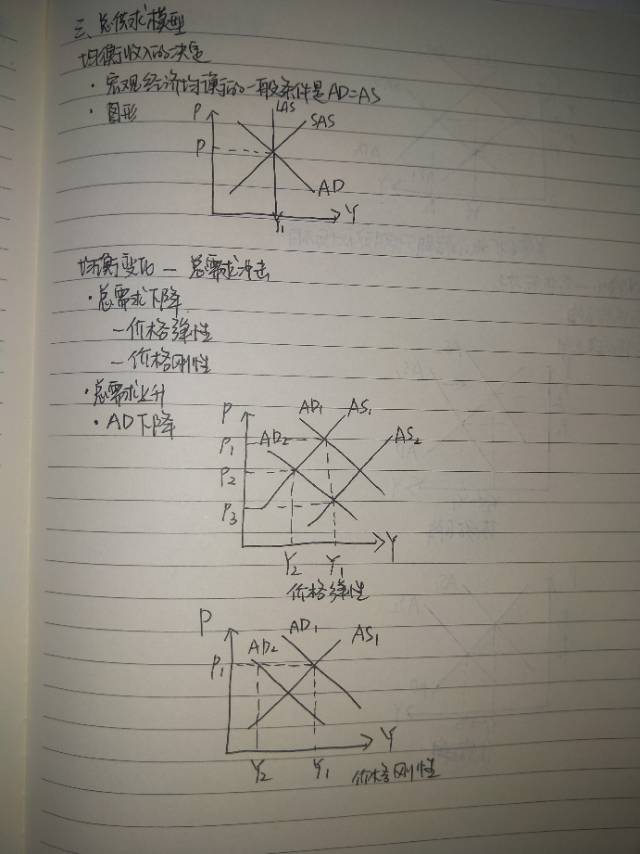 三、总供求模型
均衡收入的决定
· 宏观经济均衡的一般条件是AD=AS
· 图形
P LAS SAS
P
AD
Y
Y1
均衡变化 — 总需求冲击
· 总需求下降
— 价格弹性
— 价格刚性
· 总需求上升
· AD下降
P AD1 AS1
P1 AD2 AS2
P2
P3
Y
Y2 Y1
价格弹性
P AD1
AD2 AS1
P1
Y
Y2 Y1 价格刚性